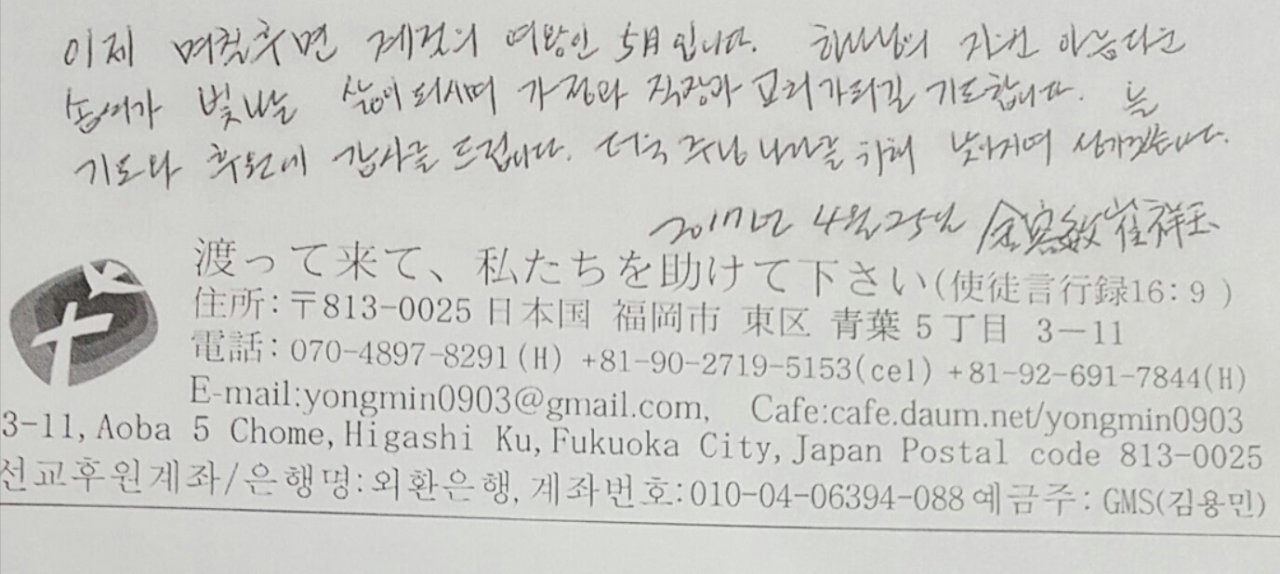 이제 며칠후면 계절의 여왕인 5月입니다. 하나님의 가장 아름다운
손에가 빛나는 삶이 되시며 가정과 직장과 교회가되길 기도합니다. 늘
기도와 후원에 감사를 드립니다. 더욱 주님 나라를 위해 낮아지며 섬기겠습니다.
2017년 4월 25일 金容敏 崔祥玉
渡って来て、私たちを助けて下さい(使徒言行録16:9 )
住所:〒813-0025 日本国 福岡市 東区 青葉 5 丁目 3-11
電話: 070-4897-8291(H) +81-90-2719-5153(cel) +81-92-691-7844(H)
E-mail:yongmin0903@gmail.com, Cafe:cafe.daum.net/yongmin0903
3-11, Aoba 5 Chome, Higashi Ku, Fukuoka City, Japan Postal code 813-0025
선교후원계좌/은행명:외환은행, 계좌번호:010-04-06394-088 예금주: GMS(김용민)